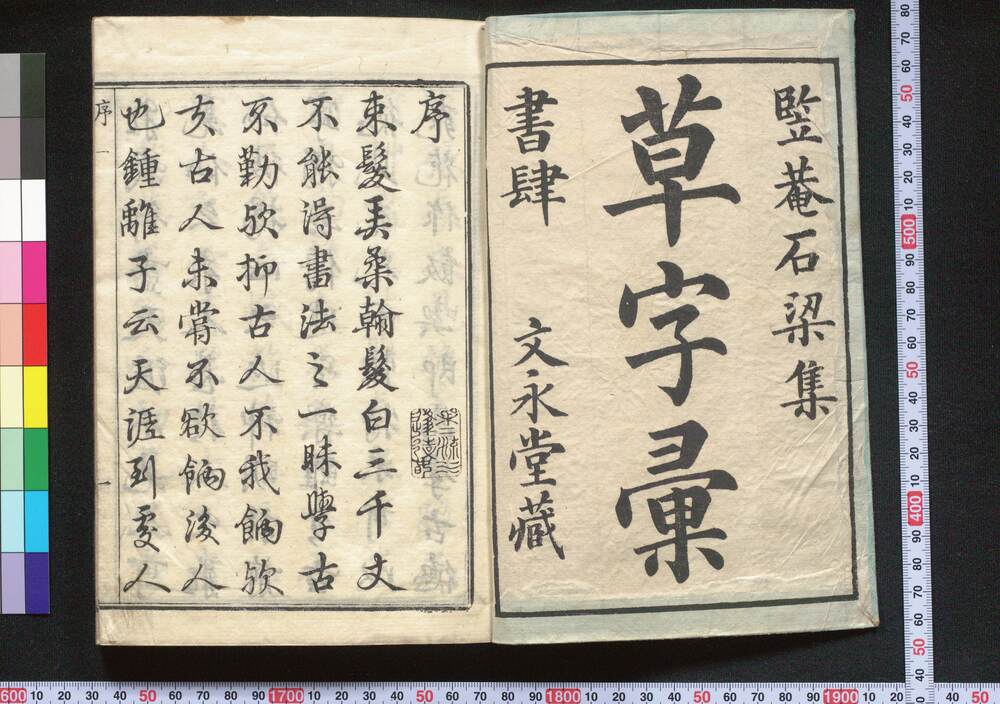 竪菴石梁集
草字彙
書肆 文永堂藏
序
束髮弄柔翰髮白三千丈
不能得書法之一昧學古
不勤欤抑古人不我餉欤
夫古人未嘗不欲餉後人
也鍾離子云天涯到處人
序 一
一